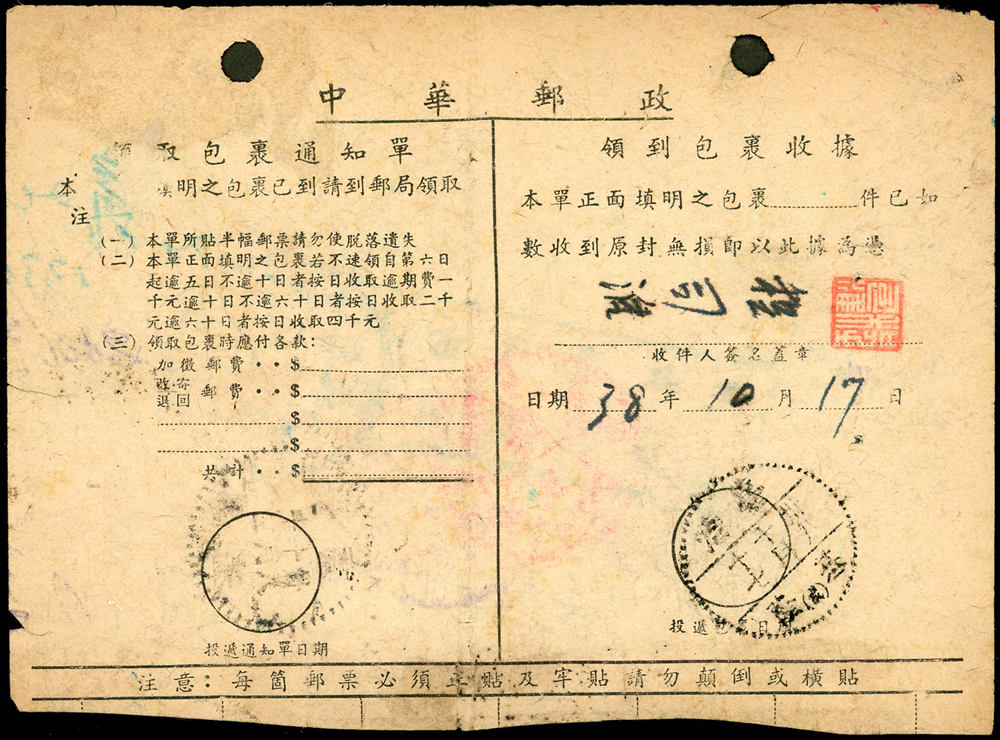 中華郵政
領取包裹通知單
本 填明之包裹已到請到郵局領取
注
(一) 本單所貼半幅郵票請勿使脫落遺失
(二) 本單正面填明之包裹若不速領自第六日
起逾五日不逾十日者按日收取逾期費一
千元逾十日不逾六十日者按日收取二千
元逾六十日者按日收取四千元
(三) 領取包裹時應付各款:
加徵郵費··$
改寄退回郵費··$
$
$
共計··$
投遞通知單日期
領到包裹收據
本單正面填明之包裹 件已如
數收到原封無損即以此據為憑
收件人簽名蓋章
日期 38 年 10 月 17 日
投遞包裹日期
注意:每箇郵票必須正貼及牢貼請勿顛倒或橫貼